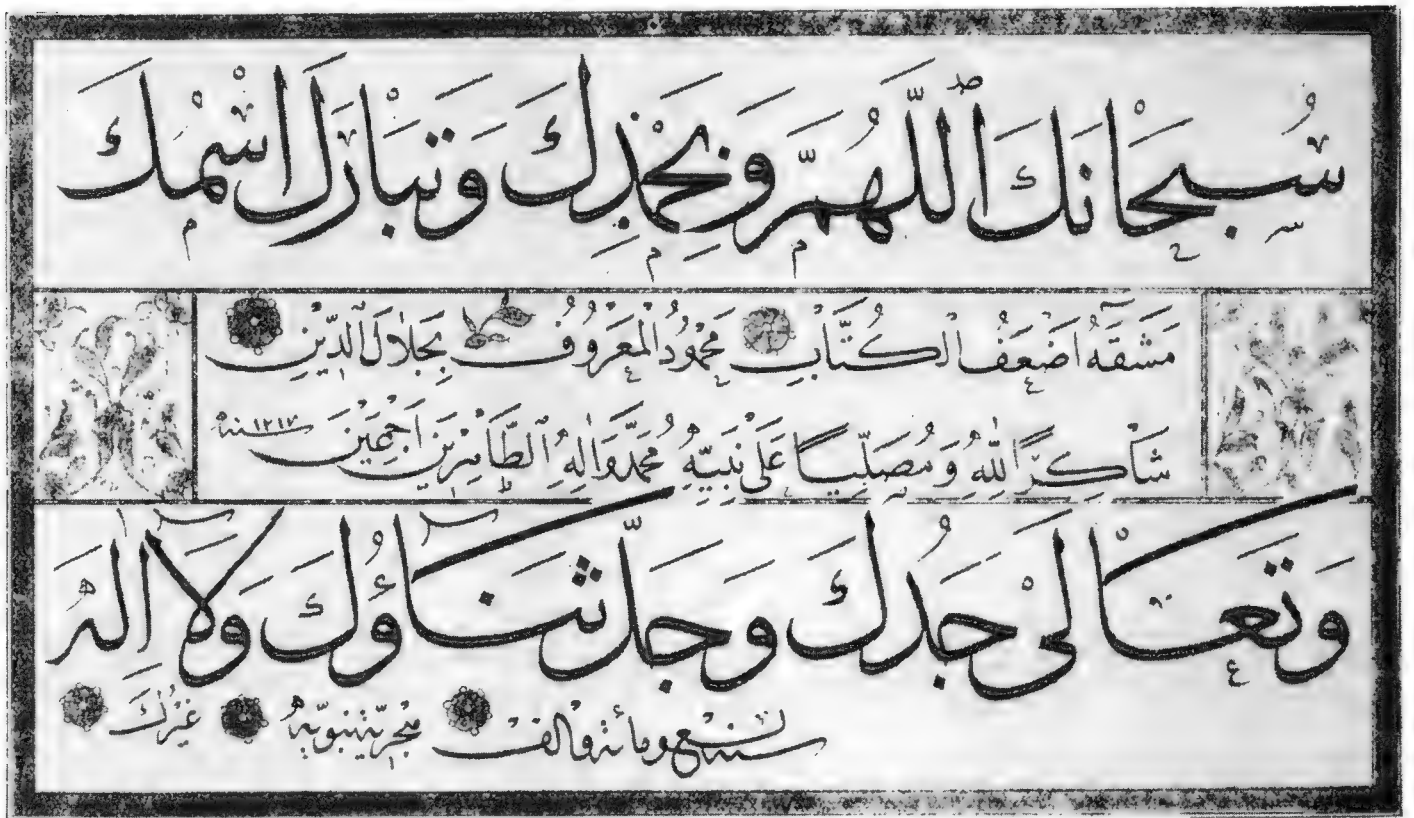 سُبْحَانَكَ اللَّهُمَّ وَبِحَمْدِكَ وَتَبَارَكَ اسْمُكَ
مَشَقَهُ اَضْعَفُ الْكُتَّابِ مَحْمُودُ الْمَعْرُوفُ بِجَلَالِ الدِّيْنِ
شَاكِرًا لِلّٰهِ وَمُصَلِّيًا عَلَى نَبِيِّهِ مُحَمَّدٍ وَاٰلِهِ الطَّاهِرِيْنَ اَجْمَعِيْنَ سنة ١٢١٧
وَتَعَالَىٰ جَدُّكَ وَجَلَّ ثَنَاؤُكَ وَلَا اِلٰهَ
غَيْرُكَ هجرية نبويه ومائة والف سنة